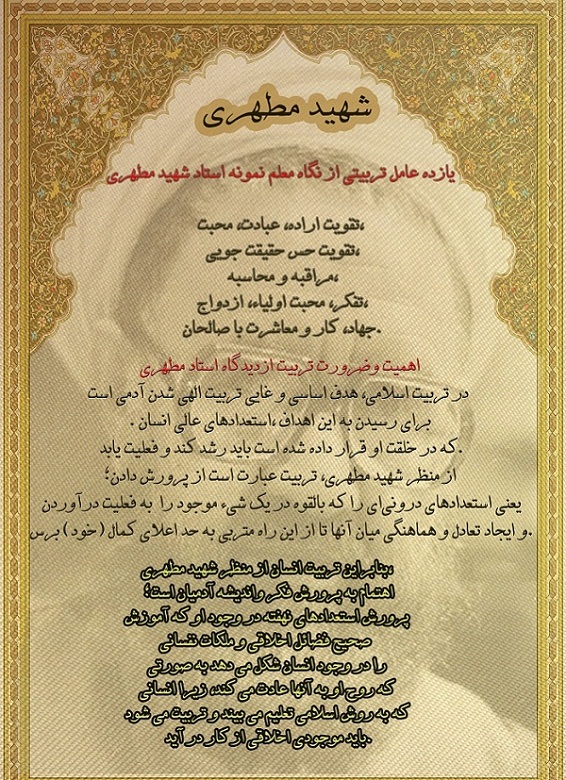 شهید مطهری
یازده عامل تربیتی از نگاه معلم نمونه استاد شهید مطهری
،تقویت اراده، عبادت، محبت
،تقویت حس حقیقت جویی
،مراقبه و محاسبه
،تفکر، محبت اولیاء، ازدواج
.جهاد، کار و معاشرت با صالحان
اهمیت و ضرورت تربیت از دیدگاه استاد مطهری
در تربیت اسلامی،هدف اساسی و غایی تربیت الهی شدن آدمی است
برای رسیدن به این اهداف ،استعدادهای عالی انسان .
.که در خلقت او قرار داده شده است باید رشد کند و فعلیت یابد
از منظر شهید مطهری، تربیت عبارت است از پرورش دادن؛
یعنی استعدادهای درونی‌ای را که بالقوه در یک شیء موجود را به فعلیت در آوردن
.و ایجاد تعادل و هماهنگی میان آنها تا از این راه متربی به حد اعلای کمال ( خود ) برس
،بنابراین تربیت انسان از منظر شهید مطهری
اهتمام به پرورش فکر و اندیشه آدمیان است؛
پرورش استعدادهای نهفته در وجود او که آموزش
صحیح فضائل اخلاقی و ملکات نفسانی
را در وجود انسان شکل می دهد به صورتی
که روح او به آنها عادت می کند، زیرا انسانی
که به روش اسلامی تعلیم می بیند و تربیت می شود
.باید موجودی اخلاقی از کار در آید